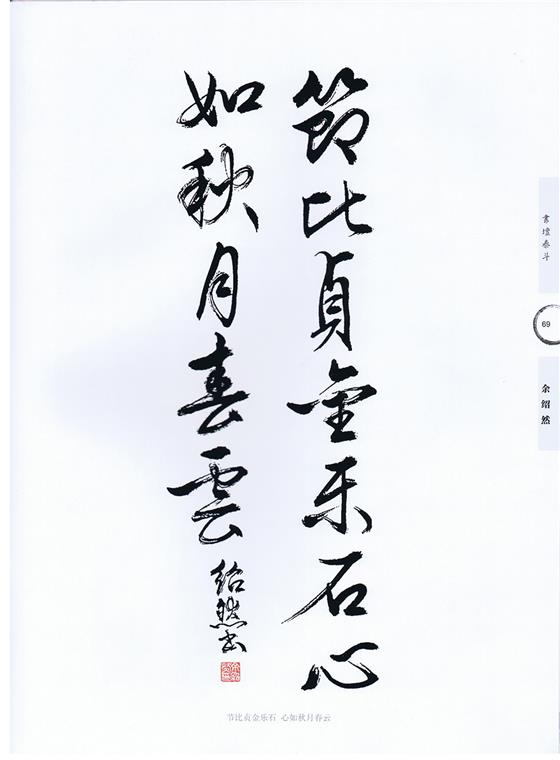 節比貞金乐石心
如秋月春雲
紹然书
节比贞金乐石 心如秋月春云
書壇泰斗
69
余绍然